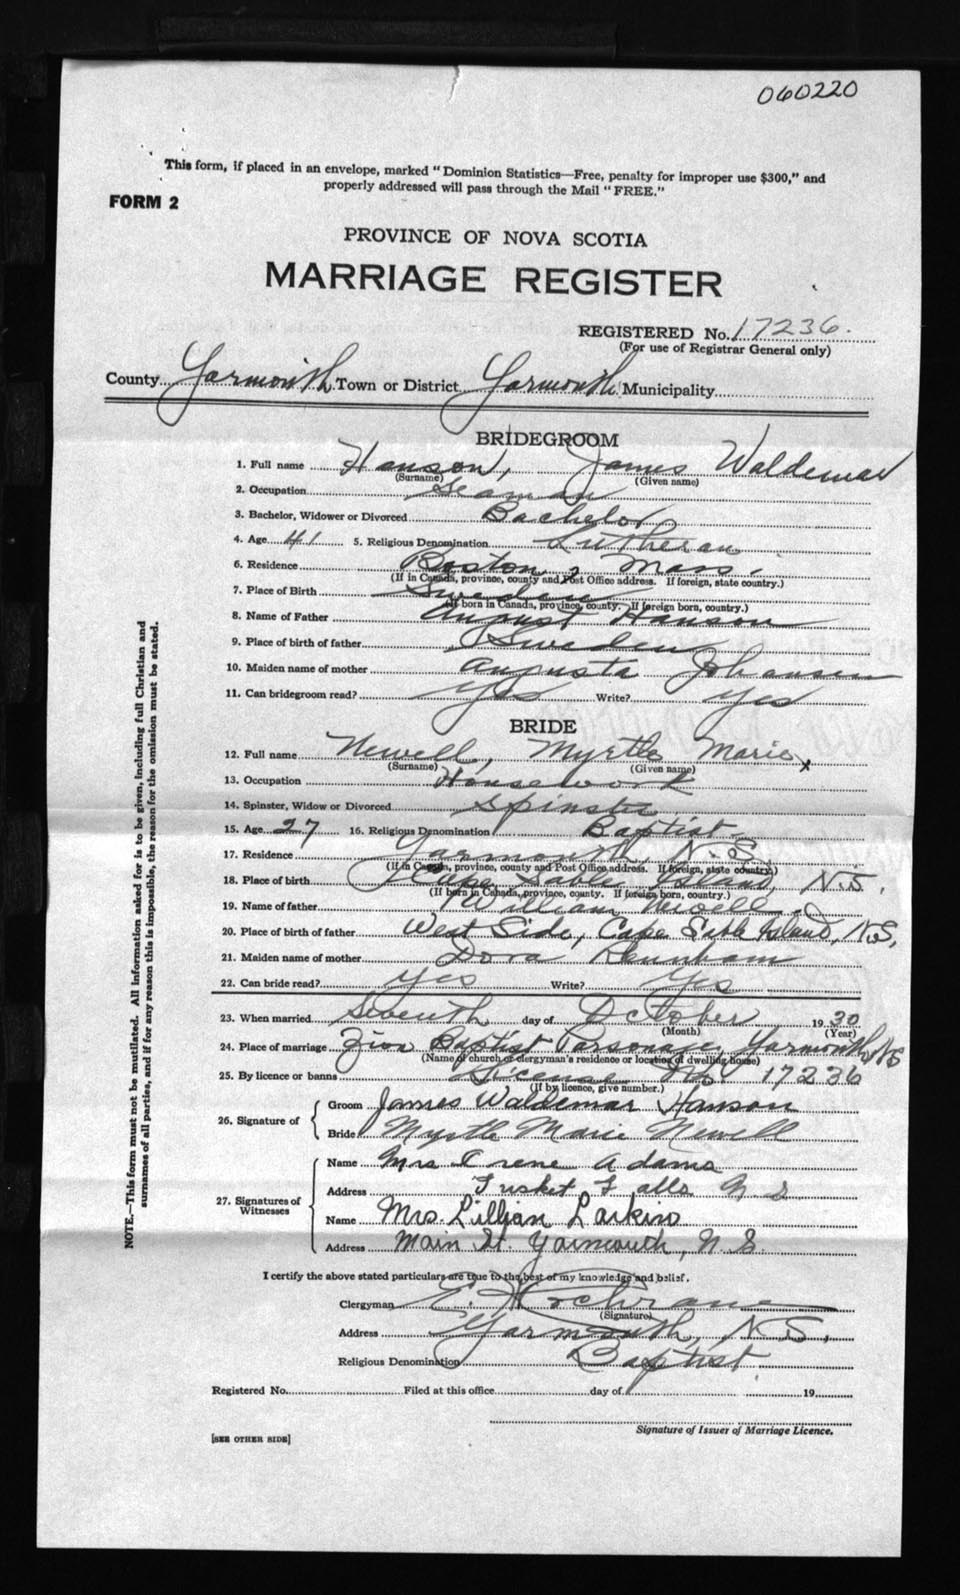 060220
This form, if placed in an envelope, marked "Dominion Statistics—Free, penalty for improper use $300," and
properly addressed will pass through the Mail "FREE."
FORM 2
PROVINCE OF NOVA SCOTIA
MARRIAGE REGISTER
REGISTERED No. 17236.
(For use of Registrar General only)
County Yarmouth Town or District Yarmouth Municipality
BRIDEGROOM
1. Full name Hanson, James Waldemar
(Surname) (Given name)
2. Occupation Seaman
3. Bachelor, Widower or Divorced Bachelor
4. Age 41 5. Religious Denomination Lutheran
6. Residence Boston, Mass.
(If in Canada, province, county and Post Office address. If foreign, state country.)
7. Place of Birth Sweden
(If born in Canada, province, county. If foreign born, country.)
8. Name of Father August Hanson
9. Place of birth of father Sweden
10. Maiden name of mother Augusta Johansen
11. Can bridegroom read? Yes Write? Yes
BRIDE
12. Full name Newell, Myrtle Marie
(Surname) (Given name)
13. Occupation Housework
14. Spinster, Widow or Divorced Spinster
15. Age 27 16. Religious Denomination Baptist
17. Residence Yarmouth, N.S.
(If in Canada, province, county and Post Office address. If foreign, state country)
18. Place of birth Cape Sable Island, N.S.
(If born in Canada, province, county. If foreign born, country.)
19. Name of father William Newell
20. Place of birth of father West Side, Cape Sable Island, N.S.
21. Maiden name of mother Dora
22. Can bride read? Yes Write? Yes
23. When married Seventh day of October 1930
(Month) (Year)
24. Place of marriage Zion Baptist Parsonage, Yarmouth, N.S
(Name of church or clergyman's residence or location of dwelling house)
25. By licence or banns License No. 17236
(If by licence, give number.)
26. Signature of
Groom James Waldemar Hanson
Bride Myrtle Marie Newell
27. Signatures of Witnesses
Name Mrs Irene Adams
Address Tusket Falls N S
Name Mrs. Lillian Larkins
Address Main St. Yarmouth, N.S.
I certify the above stated particulars are true to the best of my knowledge and belief.
Clergyman E. H. Cochrane
(Signature)
Address Yarmouth, N.S.
Religious Denomination Baptist
Registered No. Filed at this office day of 19
Signature of Issuer of Marriage Licence.
[SEE OTHER SIDE]
NOTE.—This form must not be mutilated. All information asked for is to be given, including full Christian and
surnames of all parties, and if for any reason this is impossible, the reason for the omission must be stated.